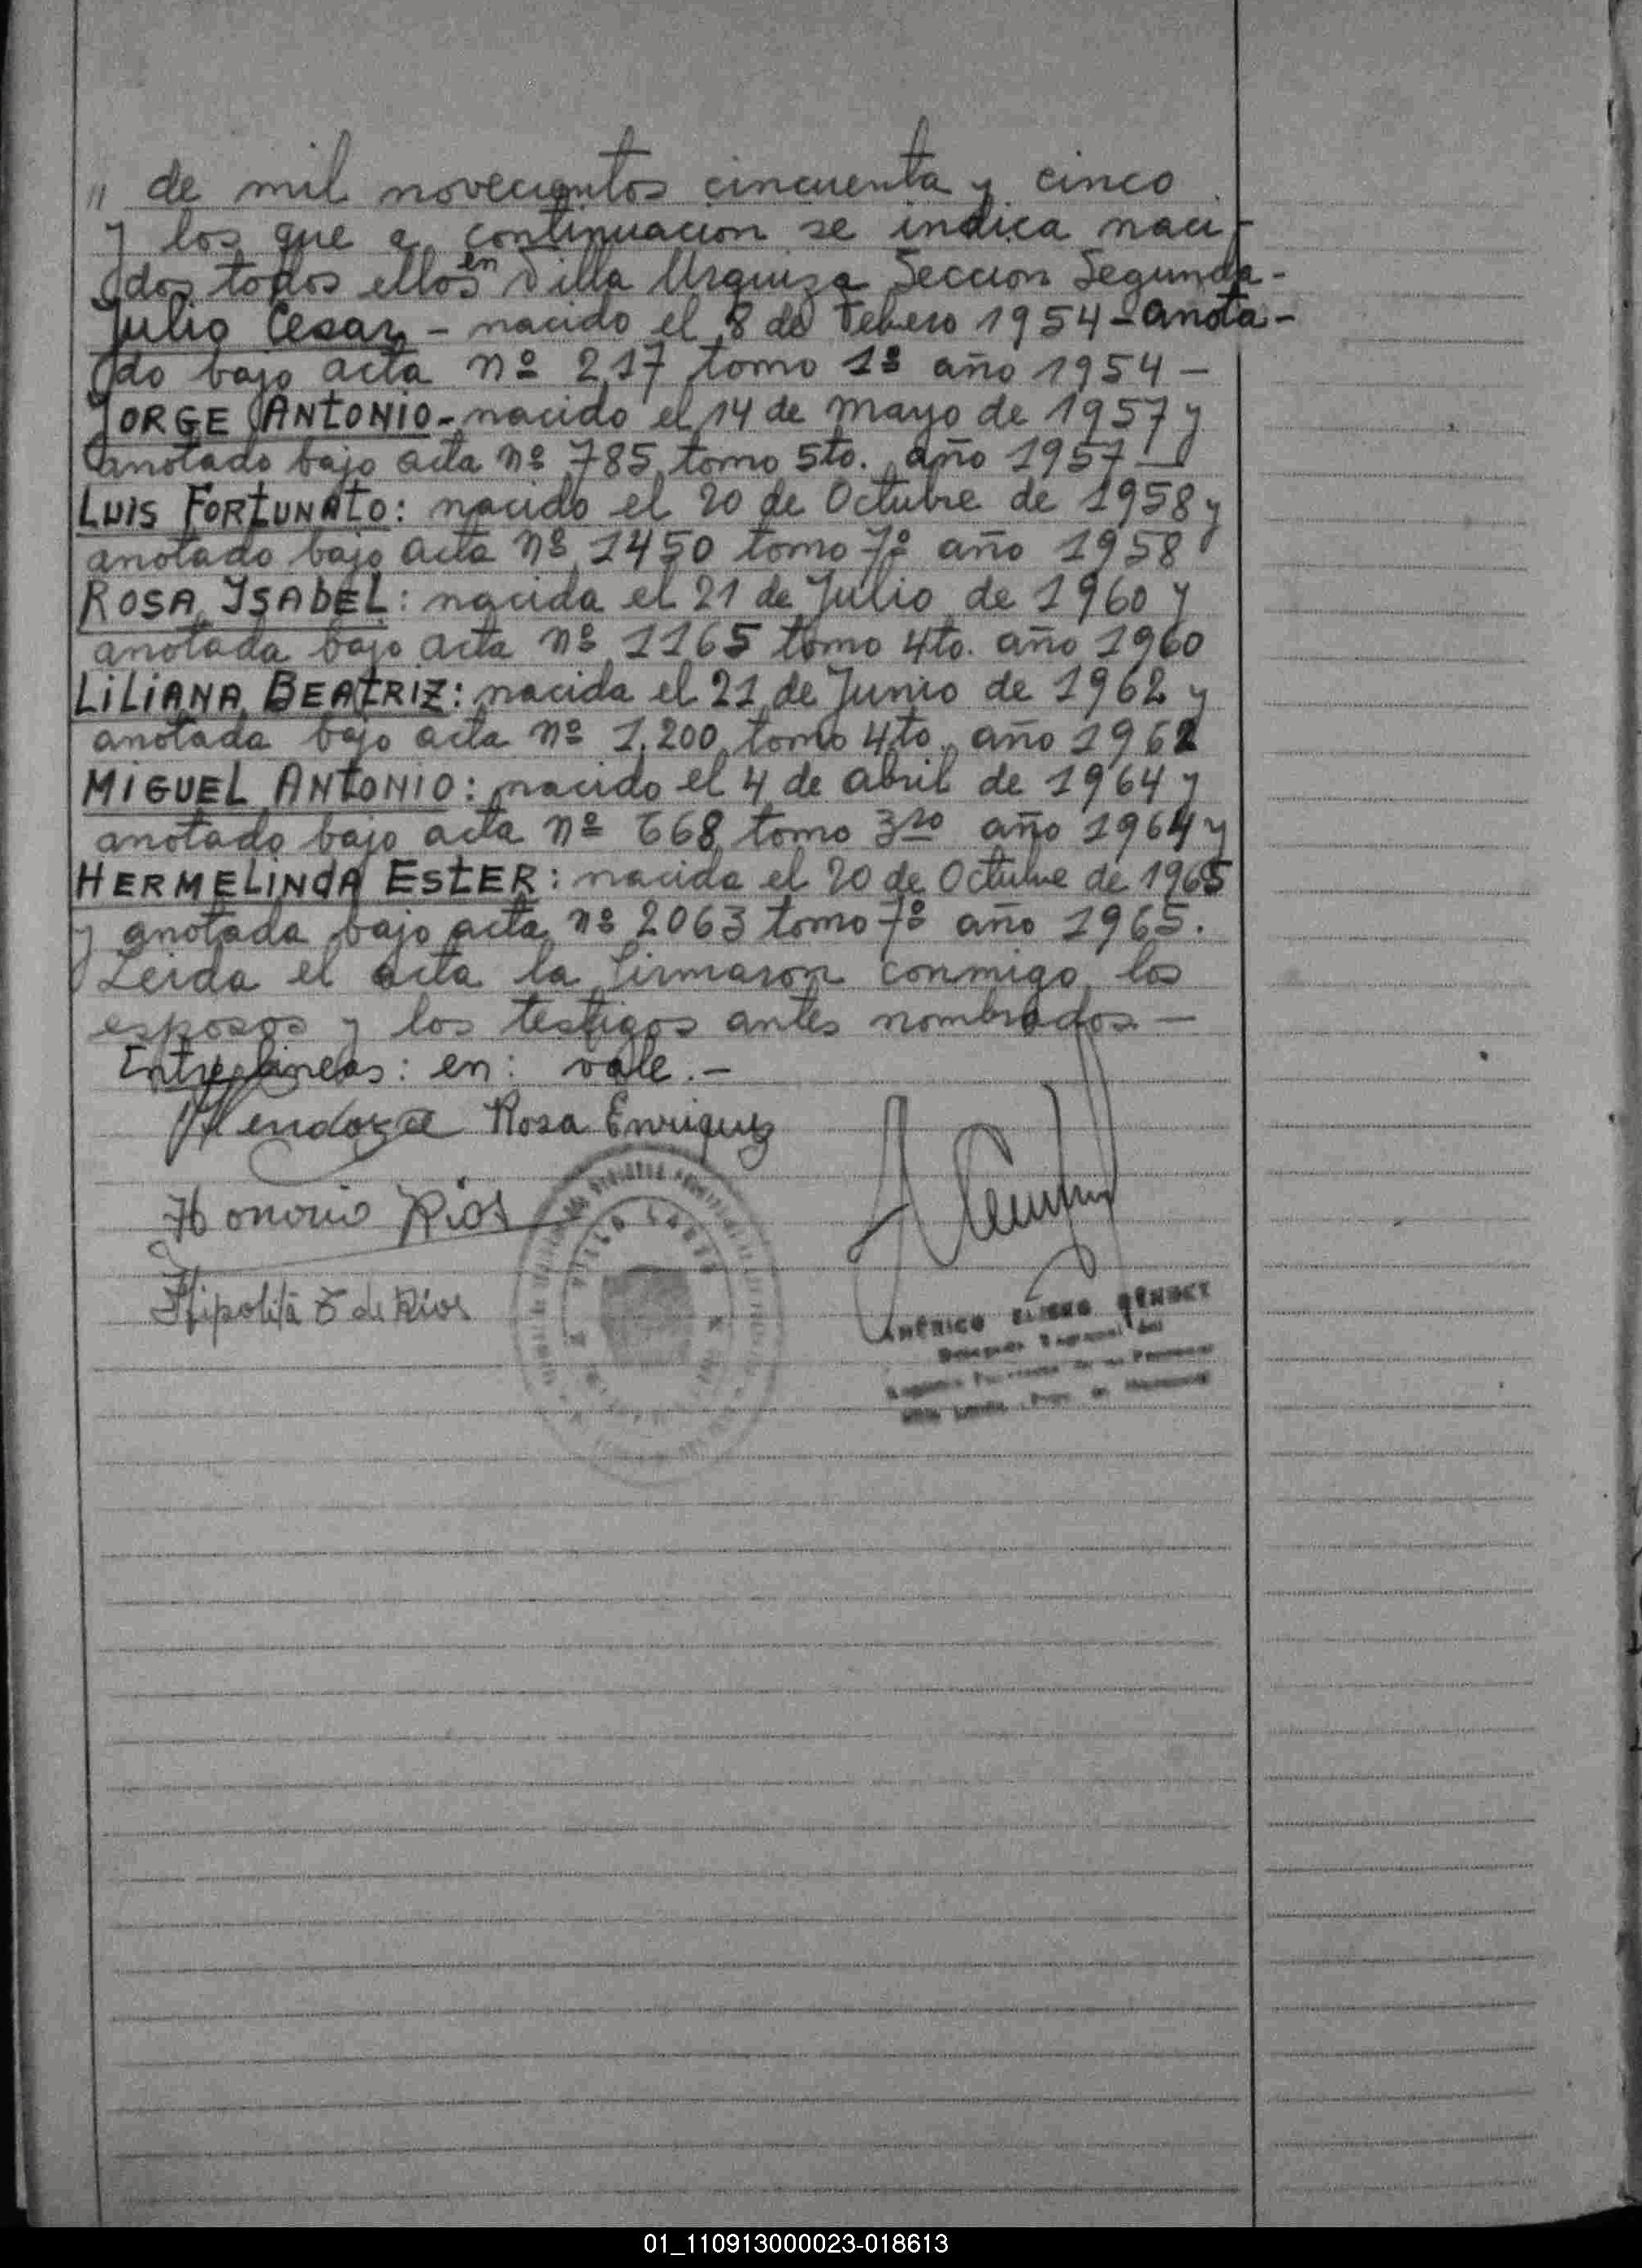 " de mil novecientos cincuenta y cinco
y los que a continuacion se indica naci-
dos todos ellos en Villa Urquiza Seccion Segunda-
Julio Cesar - nacido el 8 de Febero 1954 - anota-
do bajo acta nº 217 tomo 1º año 1954 -
JORGE ANTONIO - nacido el 14 de mayo de 1957 y
anotado bajo acta nº 785 tomo 5to. año 1957 -
LUIS FORTUNATO: nacido el 20 de Octubre de 1958 y
anotado bajo acta nº 1450 tomo 7º año 1958
ROSA ISABEL: nacida el 21 de Julio de 1960 y
anotada bajo acta nº 1165 tomo 4to. año 1960
LILIANA BEATRIZ: nacida el 21 de Junio de 1962 y
anotada bajo acta nº 1.200 tomo 4to. año 1962
MIGUEL ANTONIO: nacido el 4 de abril de 1964 y
anotado bajo acta nº 668 tomo 3ro año 1964 y
HERMELINDA ESTER: nacida el 20 de Octubre de 1965
y anotada bajo acta nº 2063 tomo 7º año 1965.
Leida el acta la firmaron conmigo los
esposos y los testigos antes nombrados -
Entrelineas: en: vale. -
Mendoza Rosa Enriquez
Honorio Rios
Hipolita de Rios
AMÉRICO
01_110913000023-018613